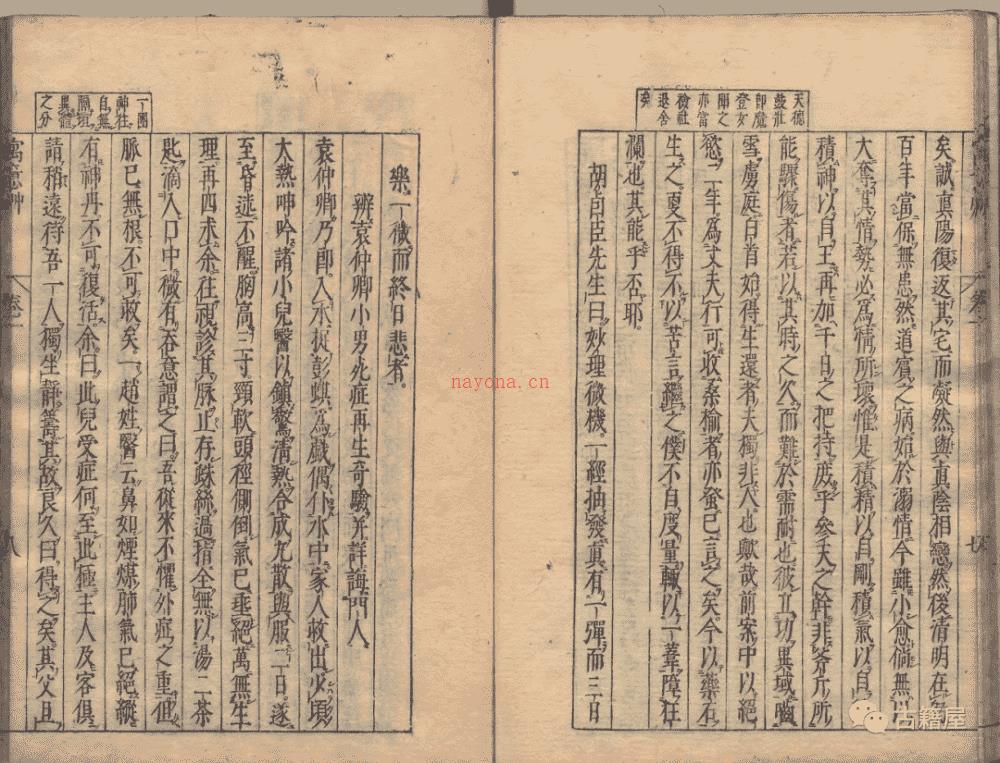 天德
鼓壯
即魔
登女
即之
亦當
檢社
退舍
矣
矣誠真陽復返其宅而凝然與真陰相戀然後清明在
百年當保無患然道賓之病始於溺情今雖小愈倘無以
大奪其情勢必為情所壞惟是積精以自剛積氣以自
積神以自王再加千日之把持庶乎參天之幹非斧斤所
能驟傷者若以其時之久而難於需耐也彼立功異域嚙
雪虜庭白首始得生還者夫獨非人也歟哉前案中以絕
慾一年為丈夫行可收桑榆者亦蚤已言之矣今以藥石
生之更不得不以苦言繼之僕不自度量輒以一葦障狂
瀾也其能乎否耶
胡卣臣先生曰妙理微機一經抽發真有一彈而三日
樂一徵而終日悲者
辨袁仲卿小男死症再生奇驗并詳誨門人
袁仲卿乃郎入水捉彭蜞為戲偶仆水中家人救出少頃
大熱呻吟諸小兒醫以鎮驚清熱合成丸散與服二日遂
至昏迷不醒胸高三寸頸軟頭徑側倒氣已垂絕萬無生
理再四求余往視診其脉止存蛛絲過指全無以湯二茶
匙滴入口中微有吞意謂之曰吾從來不懼外症之重但
脉已無根不可救矣一趙姓醫云鼻如煙煤肺氣已絕縱
有神丹不可復活余曰此兒受症何至此極主人及客俱
請稍遠待吾一人獨坐靜籌其故良久曰得之矣其父且
一團
神往
自無
隔垣
異體
之分
寓意草
卷一
八
古籍屋
nayona.cn